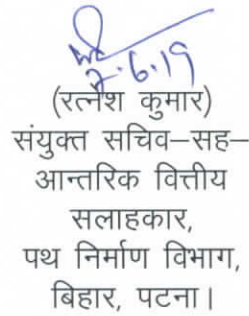 7.6.19
(रत्नेश कुमार)
संयुक्त सचिव–सह–
आन्तरिक वित्तीय
सलाहकार,
पथ निर्माण विभाग,
बिहार, पटना।